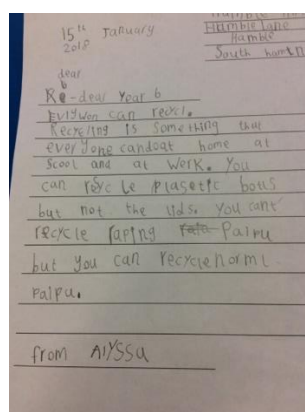 Humble Lane
15th January
Hamble
2018
South hamtn
dear
6
Re-dear Year 6
Evrywon can recicl.
Recycling is something that
everyone candoat home at
Scool and at work. You
can recycle Plasetic botls
but not the lids. You cant
recycle raping Paipu
but you can recycle norml
Paipu.
from Alyssa